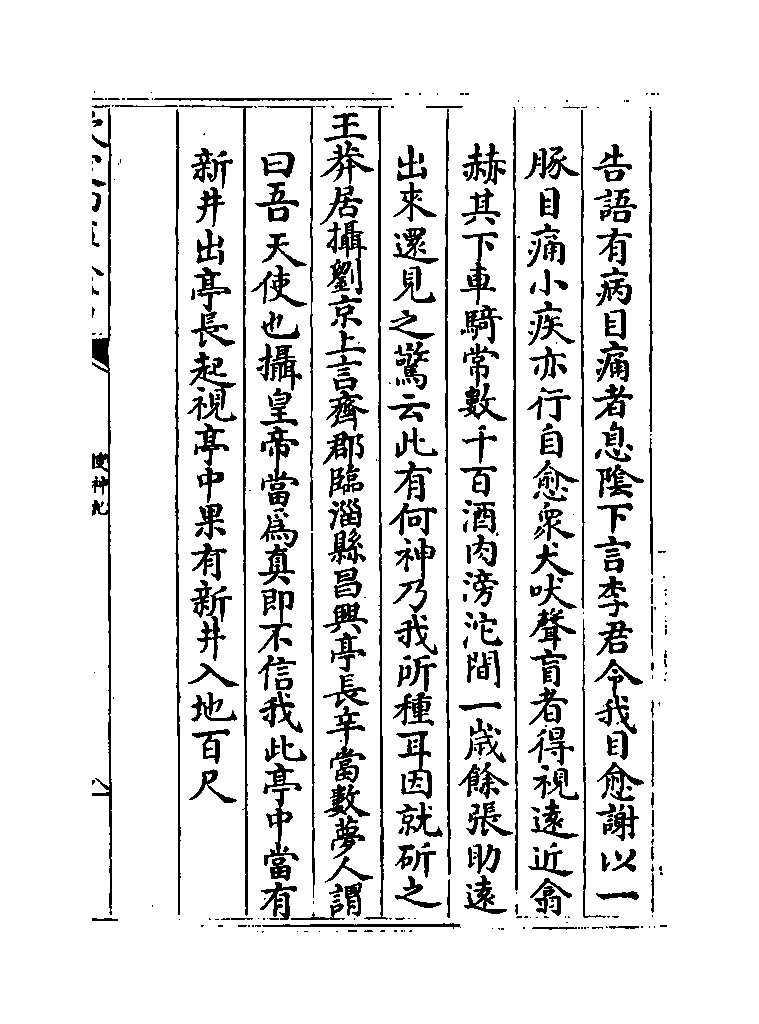 告語有病目痛者息陰下言李君令我目愈謝以一
豚目痛小疾亦行自愈衆犬吠聲盲者得視遠近翕
赫其下車騎常數千百酒肉滂沱間一歲餘張助遠
出來還見之驚云此有何神乃我所種耳因就斫之
王莽居攝劉京上言齊郡臨淄縣昌興亭長辛當數夢人謂
曰吾天使也攝皇帝當爲真即不信我此亭中當有
新井出亭長起視亭中果有新井入地百尺
搜神記